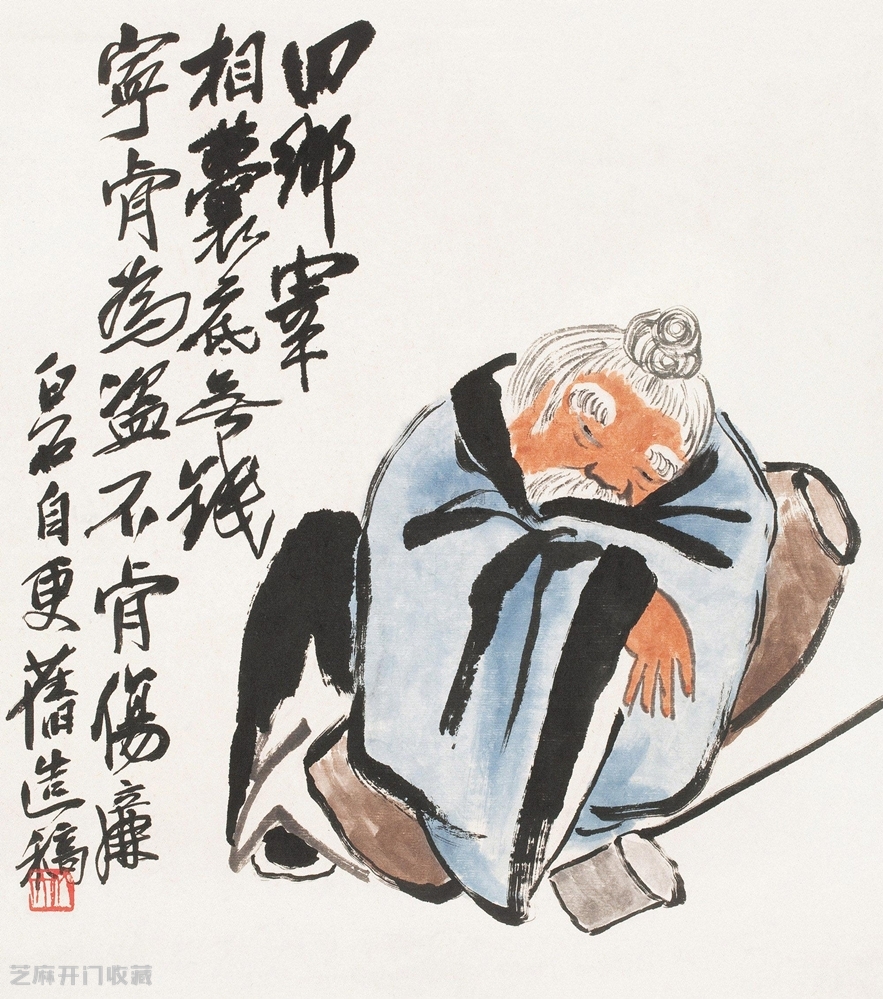 鄉宰
相囊底無錢
寧肯為盜不肯傷廉
白石自更舊造稿
芝麻开门收藏